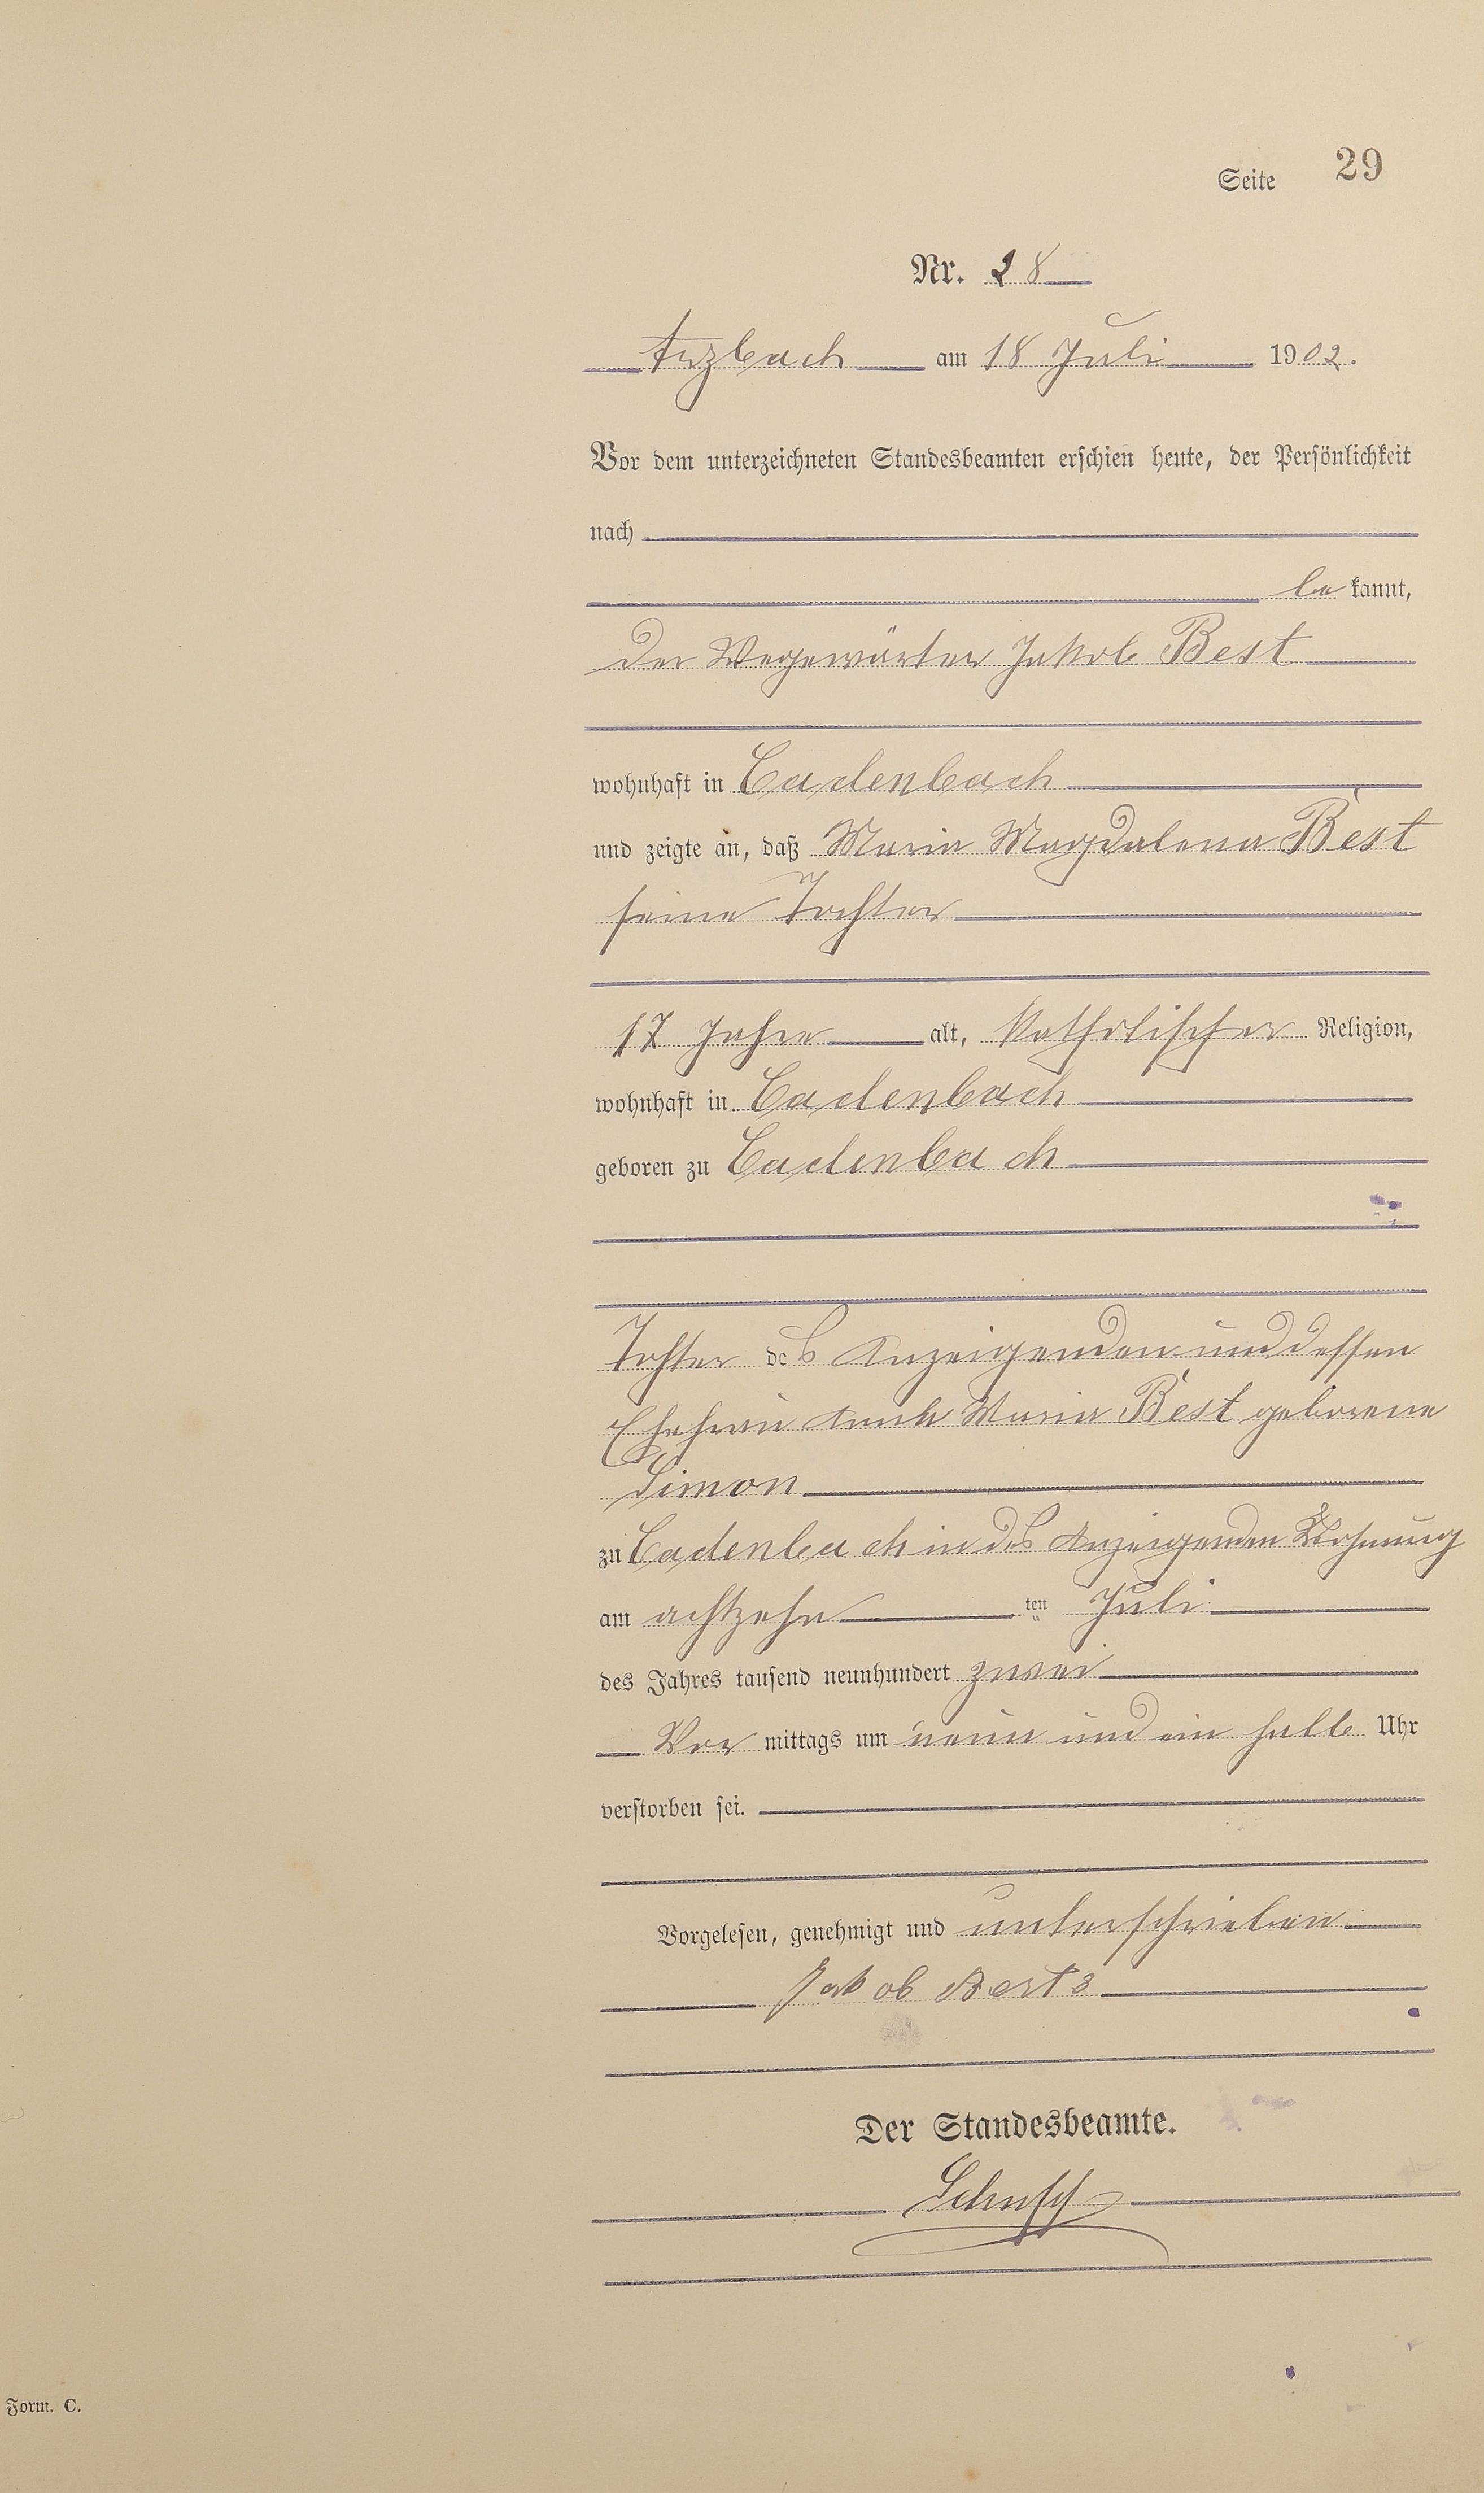 Seite 29
Nr. 28
Arzbach am 18 Juli 1902.
Vor dem unterzeichneten Standesbeamten erschien heute, der Persönlichkeit
nach
be kannt,
der Wegewärter Jakob Best
wohnhaft in Cadenbach
und zeigte an, daß Maria Magdalena Best
seine Tochter
17 Jahre alt, katholischer Religion,
wohnhaft in Cadenbach
geboren zu Cadenbach
Tochter des Anzeigenden und dessen
Ehefrau Anna Maria Best geborene
Simon
zu Cadenbach in des Anzeigenden Wohnung
am achtzehn ten Juli
des Jahres tausend neunhundert zwei
Vor mittags um neun und ein halb Uhr
verstorben sei.
Vorgelesen, genehmigt und unterschrieben
Jakob
Der Standesbeamte.
Form. C.